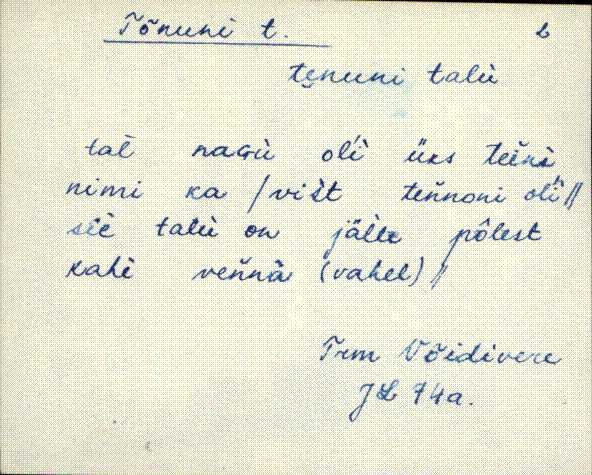 Tõnuni t.
te̮nuni talù
tal̀ nagù ol'i üks teìne
nimi ka / vis̀t ten̆noni ol'i //
siè talù on jälle pôlest
kahè ven̆nà (vahel) //
Trm Võidivere
74a.